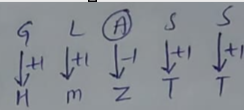 G L A S S
+1 +1 -1 +1 +1
H m Z T T